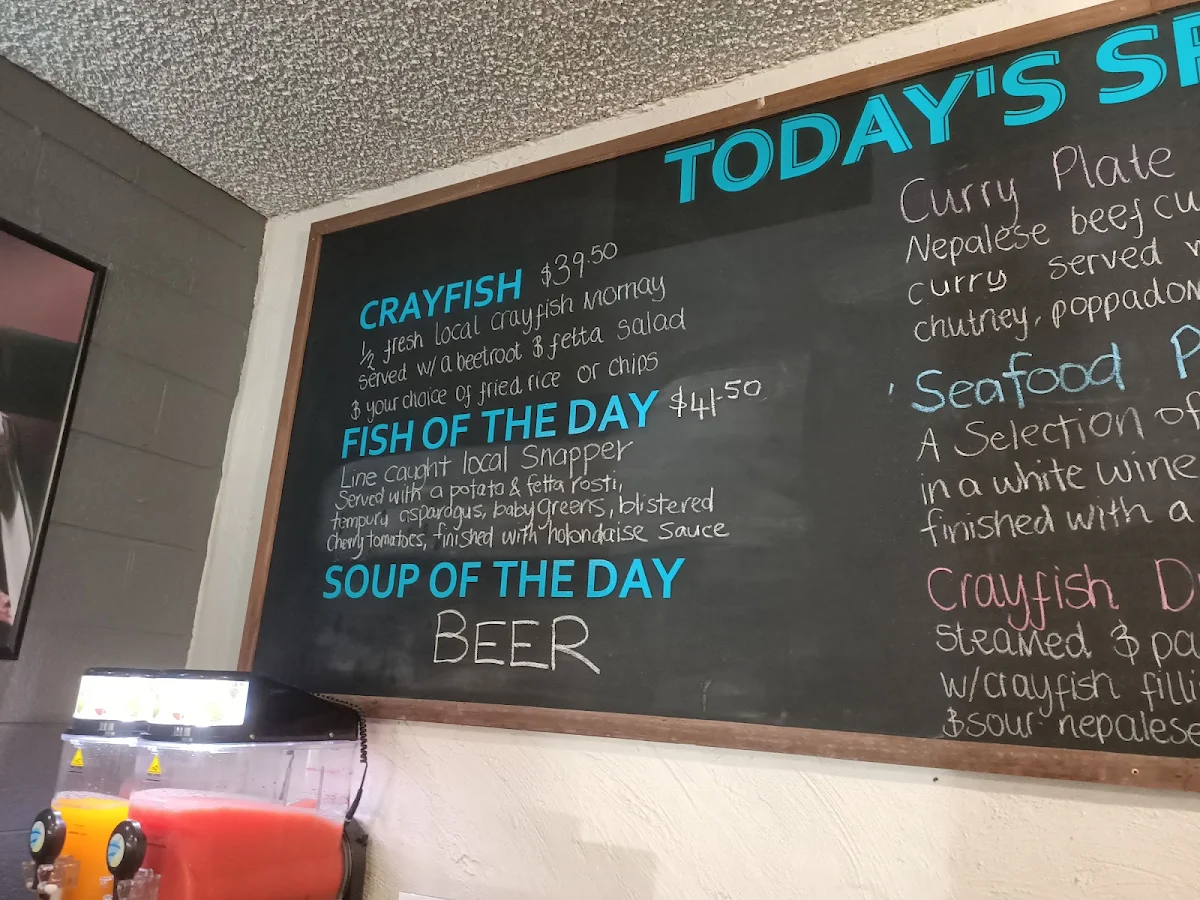 TODAY'S
CRAYFISH $39.50
1/2 fresh local crayfish Mornay
served w/ a beetroot & fetta salad
& your choice of fried rice or chips
FISH OF THE DAY $41.50
Line caught local Snapper
Served with a potato & fetta rosti,
tempury asparagus, baby greens, blistered
cherry tomatoes, finished with holondaise sauce
SOUP OF THE DAY
BEER
Curry Plate
Nepalese beef
curry served
chutney, poppadom
Seafood
A Selection of
in a white wine
finished with a
Crayfish
steamed &
w/crayfish
& sour nepalese